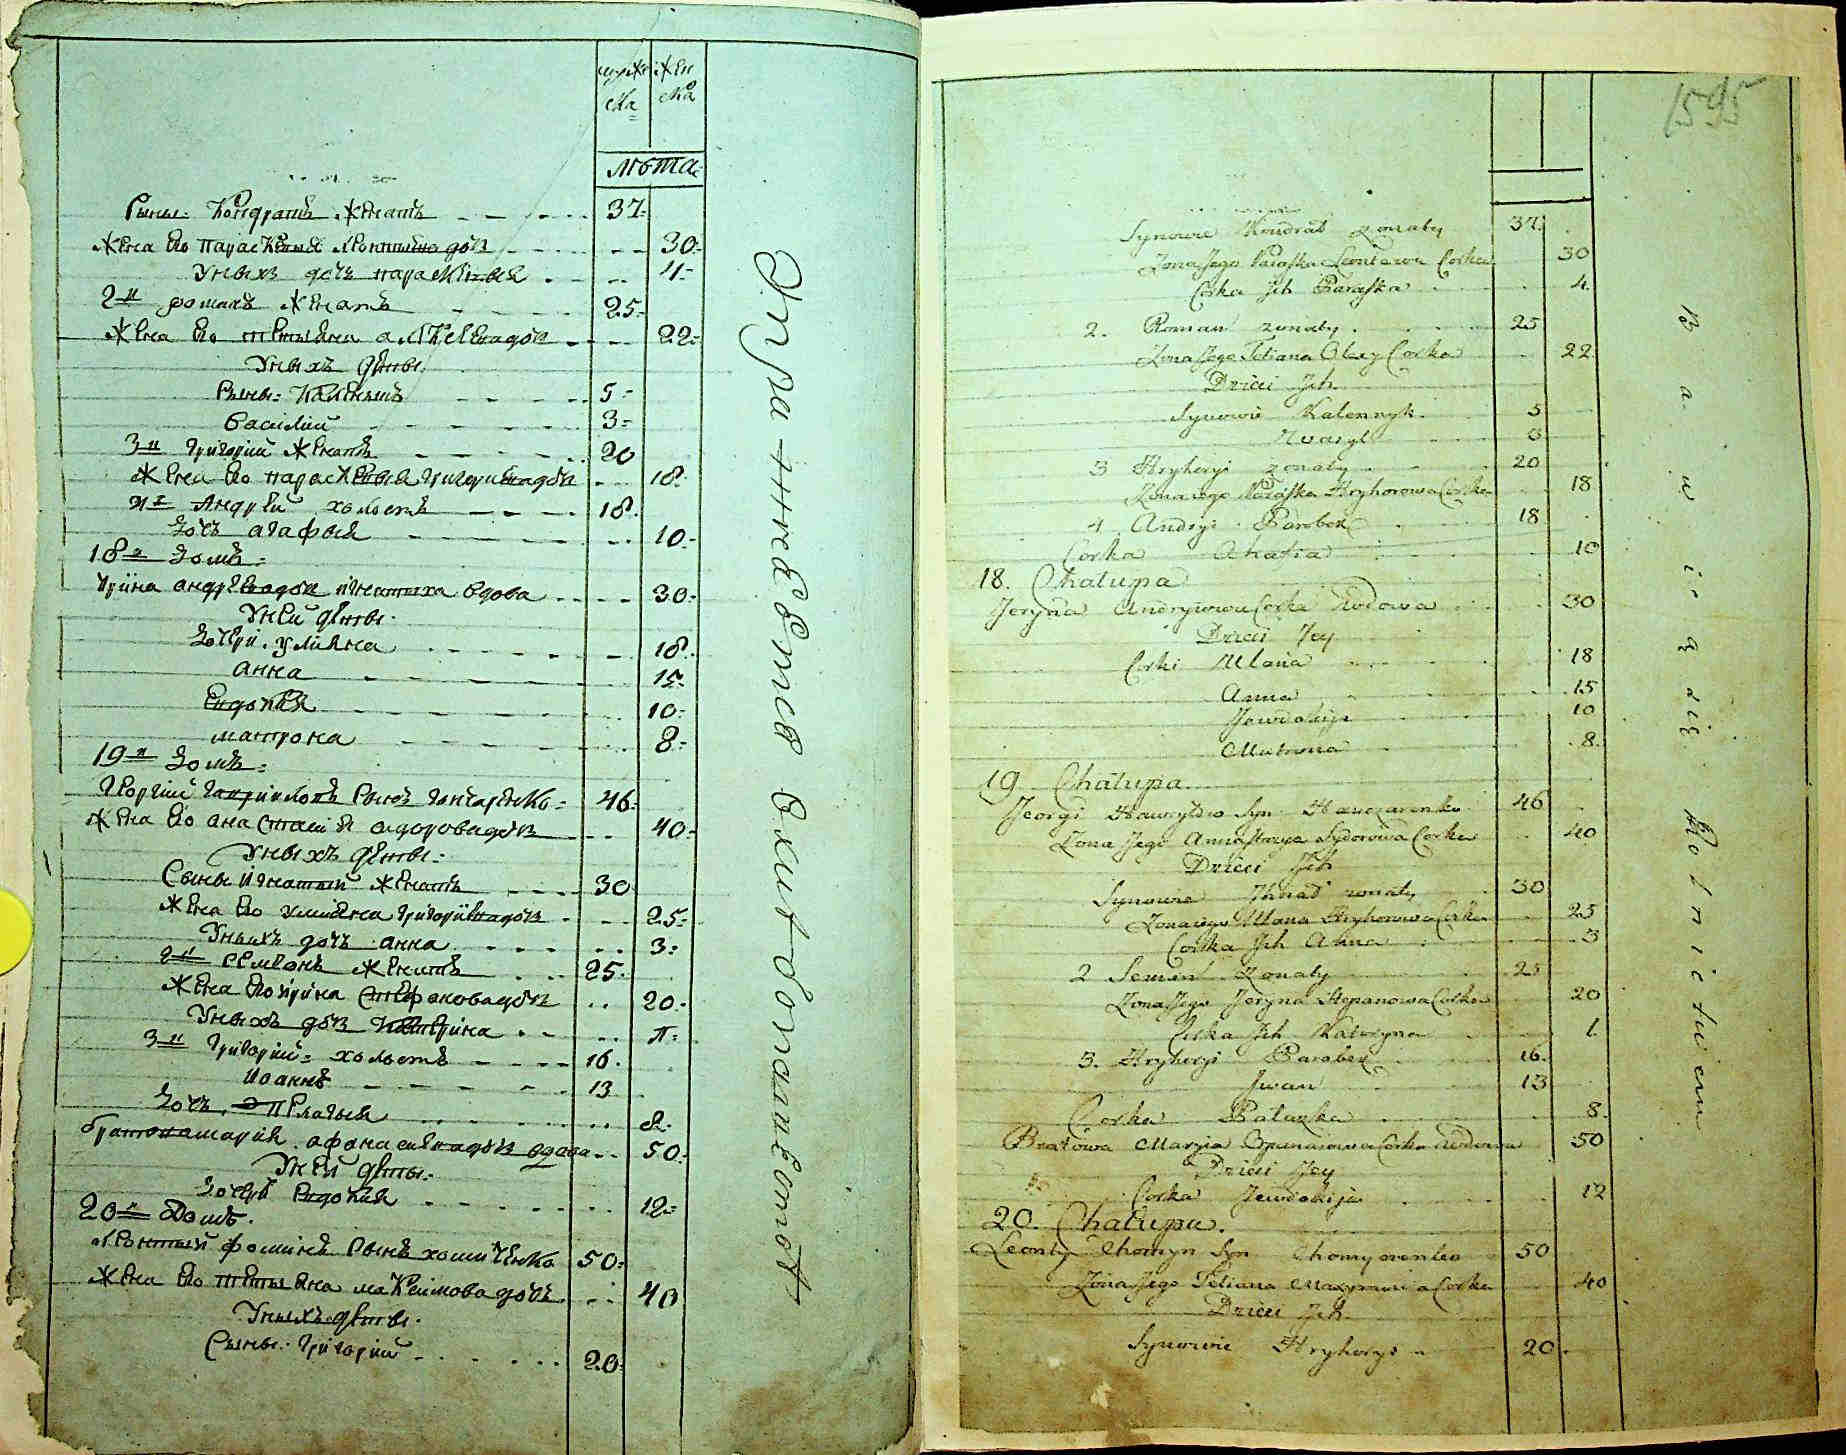 мужеска женска
лѣта
Сыны: Кондратъ женатъ 37
жена Его параскевия Леонтиева дочь 30
У них дочь параскевия 4
2й романъ женатъ 25
жена Его татияна алексеева дочь 22
Уних дети
Сыны: Каленикъ 5
Василий 3
3й григорий женатъ 20
жена Его параскевия григориева дочь 18
4й Андрей холостъ 18
Дочь агафия 10
18й Домъ
Ирина андреева дочь вдова 30
Уней дети
Дочери улияна 18
анна 15
Евдокия 10
матрона 8
19й Домъ
Георгий Гавриловъ Сынъ гончаренко 46
жена Его анастасия сидорова дочь 40
Уних дети
Сыны Игнатий женатъ 30
жена Его улияна григориева дочь 25
Уних дочь анна 3
2й семионъ женатъ 25
жена Его ирина Стефанова дочь 20
Уних дочь Катерина
3й Григорий холостъ 16
Иоаннъ 13
Дочь пелагия
братова мария афанасиева дочь вдова 50
Уней дети
Дочери Евдокия 12
20й Домъ
Леонтий фоминъ Сынъ хоминенко 50
жена Его татияна максимова дочь 40
Уних дети
Сыны Григорий 20
1595
Synowie Kondrat zonaty 37
Zona Jego Paraska Leontiewa Corka 30
Corka Jch Paraska 4
2. Roman zonaty 25
Zona Jego Tetiana Olexy Corka 22
Dzieci Jch
Synowie Kalennyk 5
Wasyl 3
3 Hryhoryi zonaty 20
Zona iego Paraska Hryhorowa Corka 18
4 Andryi Parobek 18
Corka Ahafia 10
18. Chałupa
Jeryna Andryiowa Corka Wdowa 30
Dzieci Jey
Corki Ulana 18
Anna 15
Jewdokija 10
Matrona 8
19 Chałupa
Jeorgi Hawryłow Syn Hanczarenko 46
Zona Jego Annastazya Sydorowa Corka 40
Dzieci Jch
Synowie Jhnat zonaty 30
Zona iego Ulana Hryhorowa Corka 25
Corka Jch Anna 3
2 Semen Zonaty 25
Zona Jego Jeryna Stepanowa Corka 20
Corka Jch Kateryna 1
3. Hryhoryi Parobek 16
Jwan 13
Corka Palaszka 8
Bratowa Maryia Corka Wdowa 50
Dzieci Jey
Corka Jewdokija 12
20. Chałupa.
Leonty Chomyn Syn Chomyczenko 50
Zona Jego Tetiana Maxymowa Corka 40
Dzieci Jch
Synowie Hryhoryi 20
Bawiąią się Rolnictwem